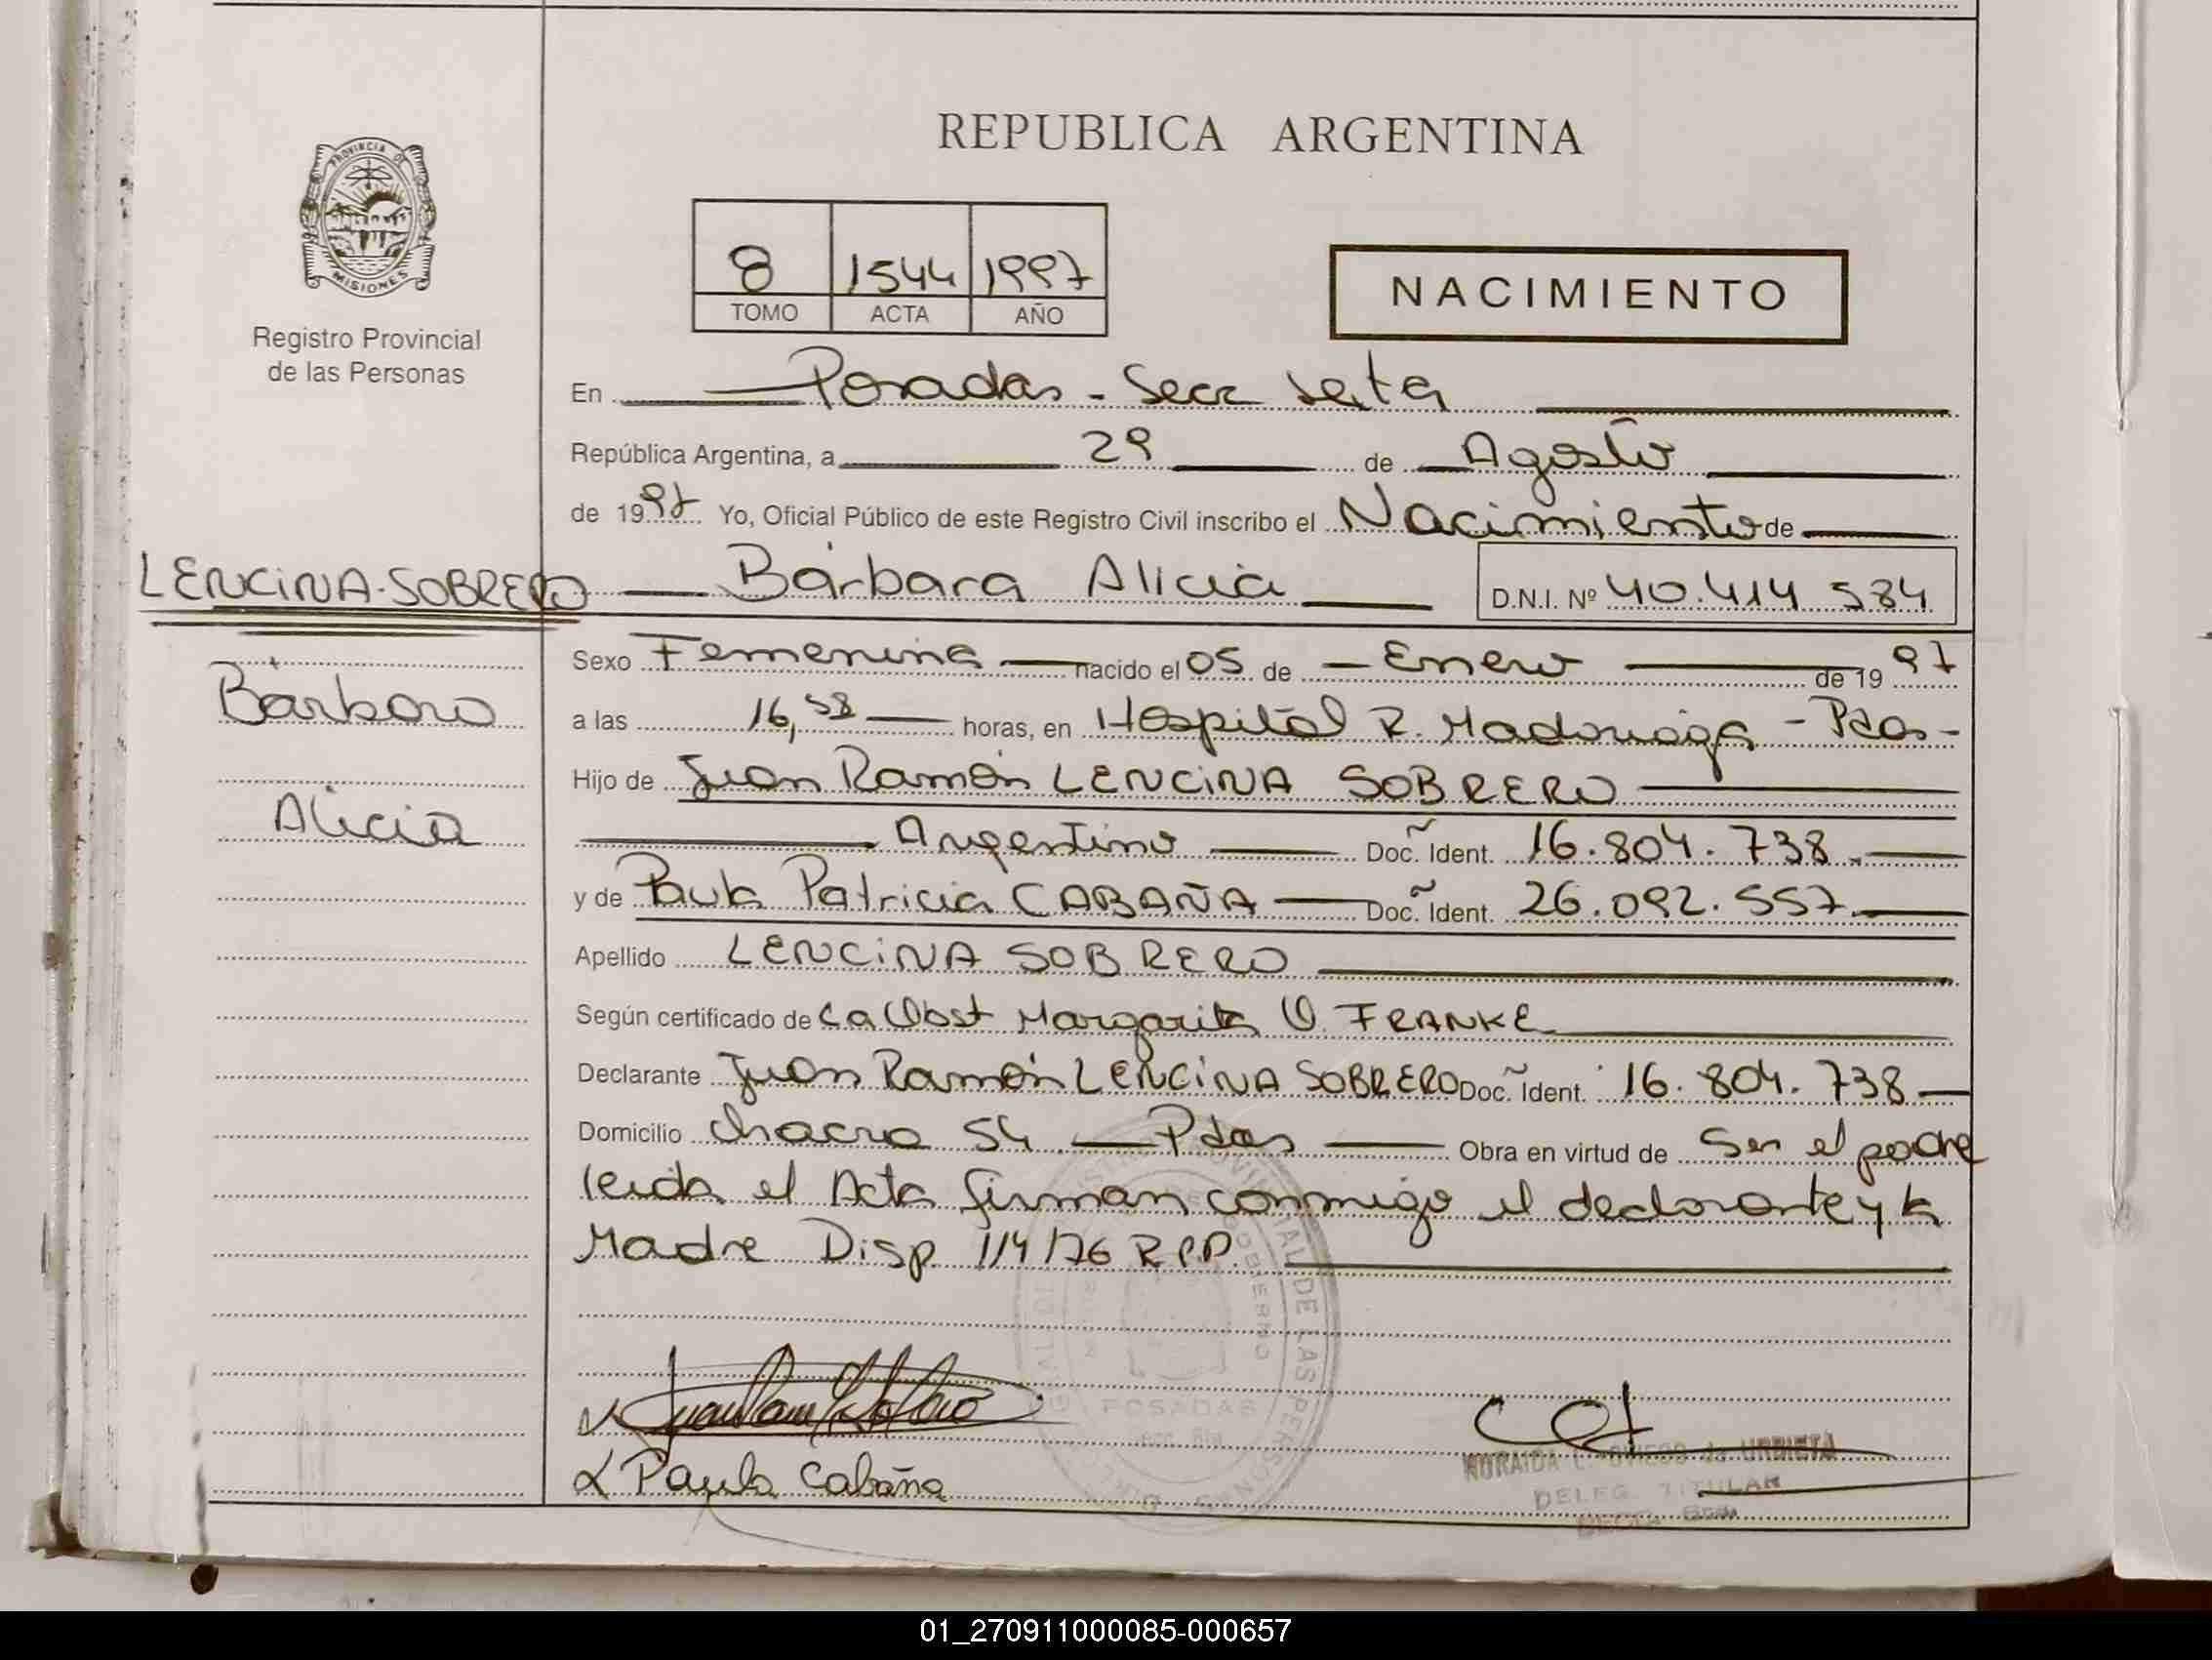 REPUBLICA ARGENTINA
PROVINCIA DE
MISIONES
Registro Provincial
de las Personas
8 1544 1997
TOMO ACTA AÑO
NACIMIENTO
En Posadas - Secc Sexta
República Argentina, a 29 de Agosto
de 1997 Yo, Oficial Público de este Registro Civil inscribo el Nacimiento de
LENCINA-SOBRERO
Bárbara Alicia D.N.I. Nº 40.414 584
Bárbara
Alicia
Sexo Femenina nacido el 05 de Enero de 1997
a las 16,58 horas, en Hospital R. Madariaga - Pdas-
Hijo de Juan Ramón LENCINA SOBRERO
Argentino Doc. Ident. 16.804.738.
y de Paula Patricia CABAÑA Doc. Ident. 26.092.557
Apellido LENCINA SOBRERO
Según certificado de La Obst Margarita O. FRANKE
Declarante Juan Ramón LENCINA SOBRERO Doc. Ident. 16.804.738
Domicilio chacra 54 Pdas Obra en virtud de Ser el padre
leida el Acta firman conmigo el declarante y la
Madre Disp. 114/76 R.P.P.
POSADAS
Paula Cabaña
DE URBIETA
DELEG. TITULAR
01_270911000085-000657